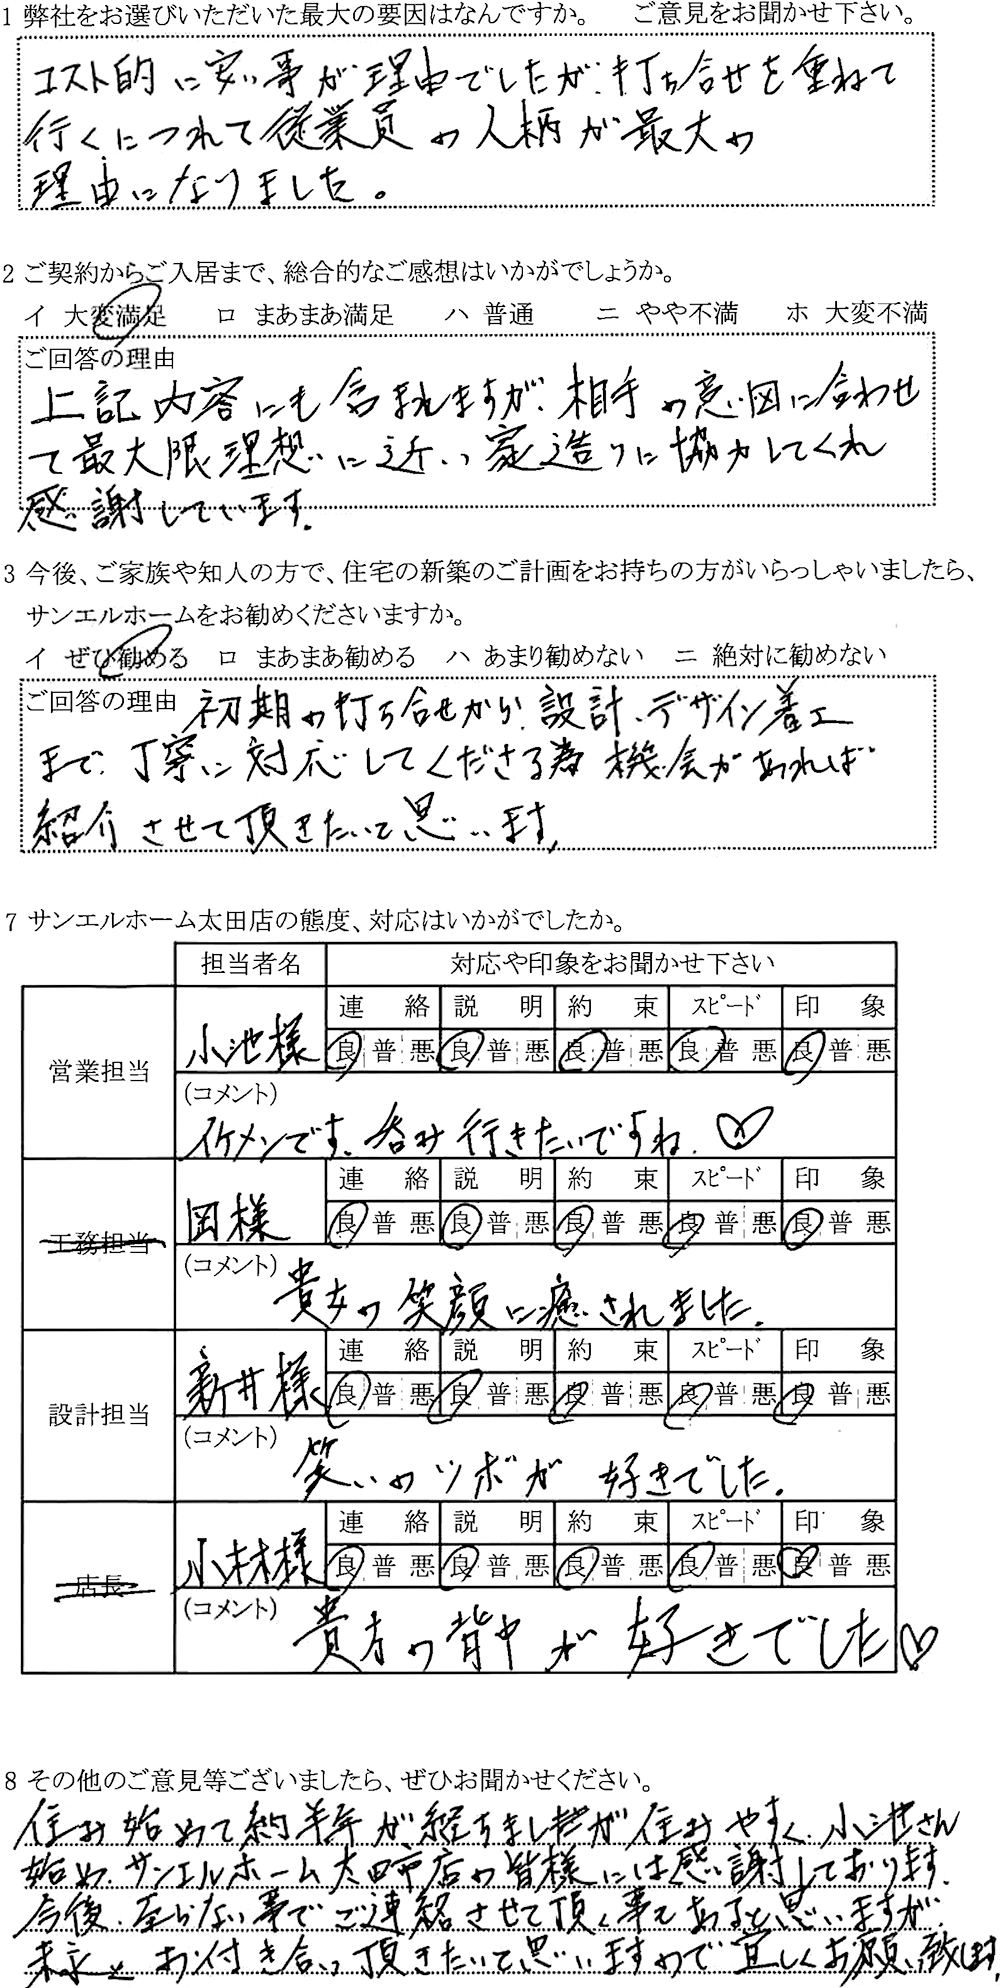 1 弊社をお選びいただいた最大の要因はなんですか。 ご意見をお聞かせ下さい。
コスト的に安い事が理由でしたが、打ち合せを重ねて
行くにつれて従業員の人柄が最大の
理由になりました。
2 ご契約からご入居まで、総合的なご感想はいかがでしょうか。
イ 大変満足 ロ まあまあ満足 ハ 普通 ニ やや不満 ホ 大変不満
ご回答の理由
上記内容にも含まれますが、相手の意図に合わせ
て最大限理想に近い家造りに協力してくれ
感謝しています。
3 今後、ご家族や知人の方で、住宅の新築のご計画をお持ちの方がいらっしゃいましたら、
サンエルホームをお勧めくださいますか。
イ ぜひ勧める ロ まあまあ勧める ハ あまり勧めない ニ 絶対に勧めない
ご回答の理由 初期の打ち合せから、設計、デザイン着工
まで、丁寧に対応してくださる為機会があれば
紹介させて頂きたいと思います。
7 サンエルホーム太田店の態度、対応はいかがでしたか。
担当者名 対応や印象をお聞かせ下さい
営業担当 小池様 連絡 説明 約束 スピード 印象
良 普 悪 良 普 悪 良 普 悪 良 普 悪 良 普 悪
(コメント)
イケメンです。呑み行きたいですね。♡
工務担当 岡様 連絡 説明 約束 スピード 印象
良 普 悪 良 普 悪 良 普 悪 良 普 悪 良 普 悪
(コメント)
貴女の笑顔に癒されました。
設計担当 新井様 連絡 説明 約束 スピード 印象
良 普 悪 良 普 悪 良 普 悪 良 普 悪 良 普 悪
(コメント)
笑いのツボが 好きでした。
店長 小林様 連絡 説明 約束 スピード 印象
良 普 悪 良 普 悪 良 普 悪 良 普 悪 良 普 悪
(コメント)
貴方の背中が好きでした♡
8 その他のご意見等ございましたら、ぜひお聞かせください。
住み始めて約半年が経ちましたが住みやすく、小池さん
始め、サンエルホーム太田店の皆様には感謝しております。
今後、至らない事でご連絡させて頂く事もあると思いますが、
末永くお付き合い頂きたいと思いますので宜しくお願い致します。